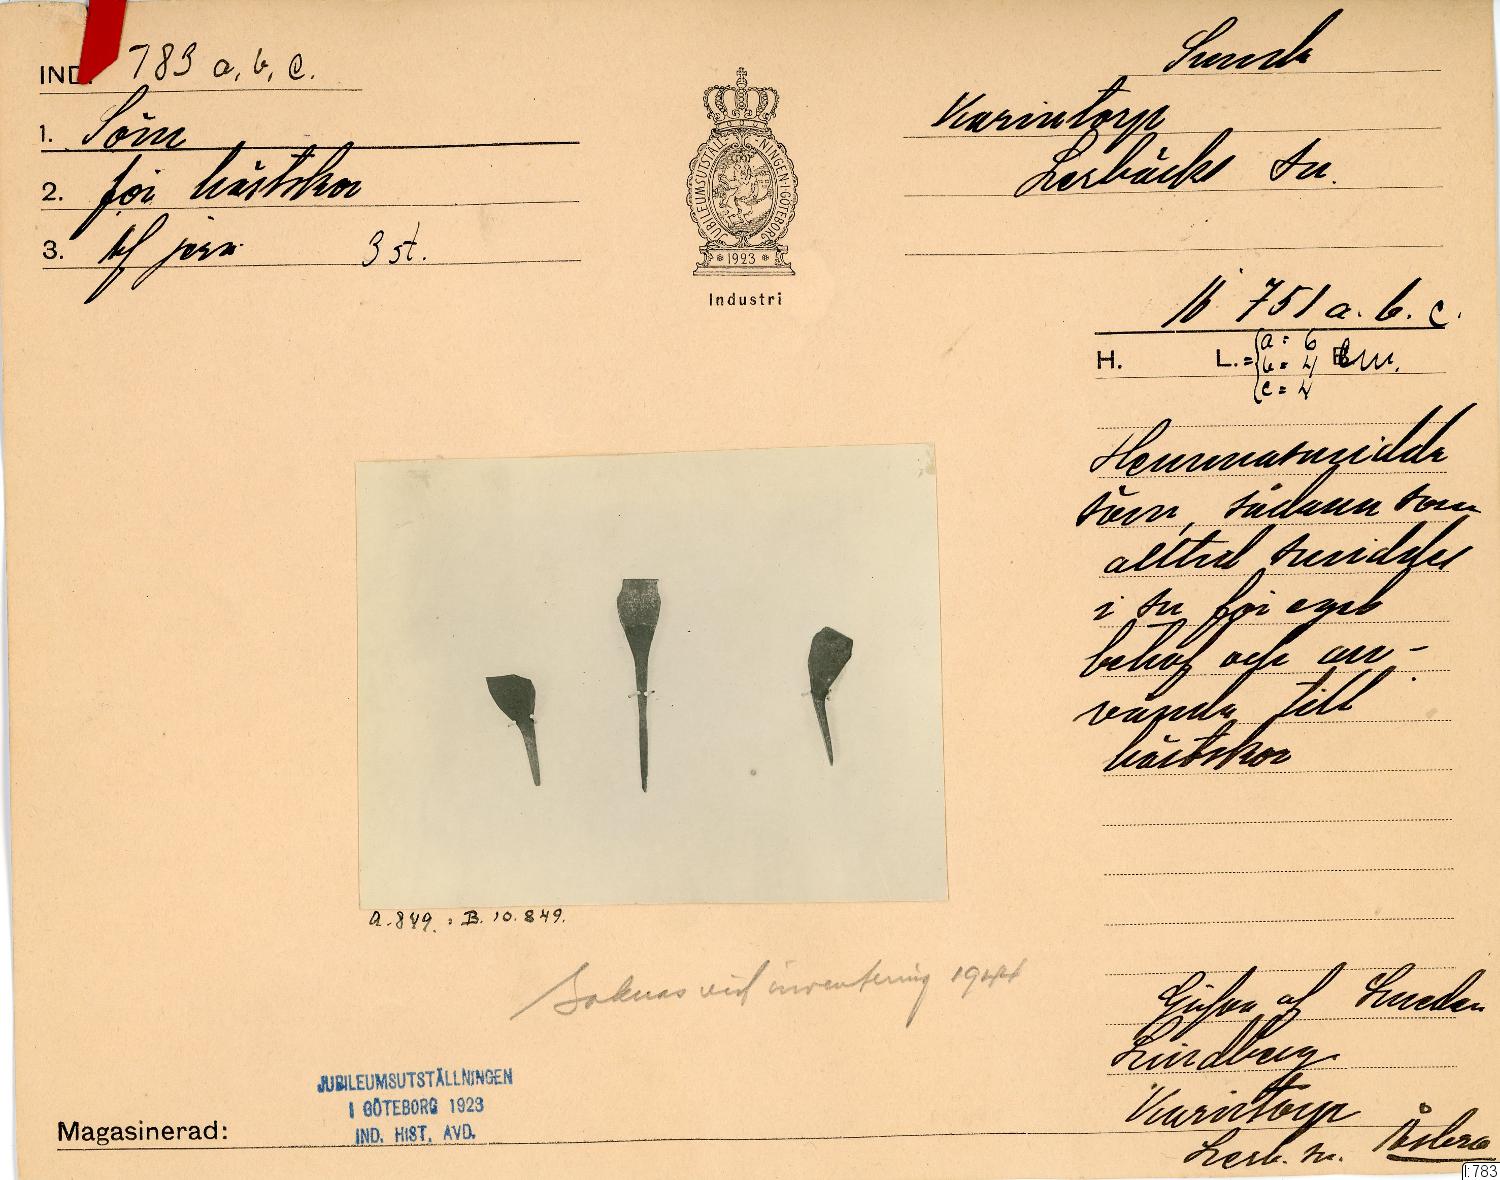 IND. 783 a, b, c.
1. Söm
2. för hästskor
3. Af järn 3 st.
JUBILEUMSUTSTÄLLNINGEN I GÖTEBORG
1923
Industri
Smide
Karintorp
Lerbäcks sn.
N 751 a. b. c.
H. L. = { a = 6 b = 4 c = 4 cm.
Hemmasmidda
söm, sådana som
alltid smiddes
i sn för eget
behof och an-
vända till
hästskor
A. 849. : B. 10. 849.
Saknas vid inventering 1944
Gåfva af Smeden
Lindberg
Karintorp
Lerb. sn. Åsbro
JUBILEUMSUTSTÄLLNINGEN
I GÖTEBORG 1923
IND. HIST. AVD.
Magasinerad:
I:783